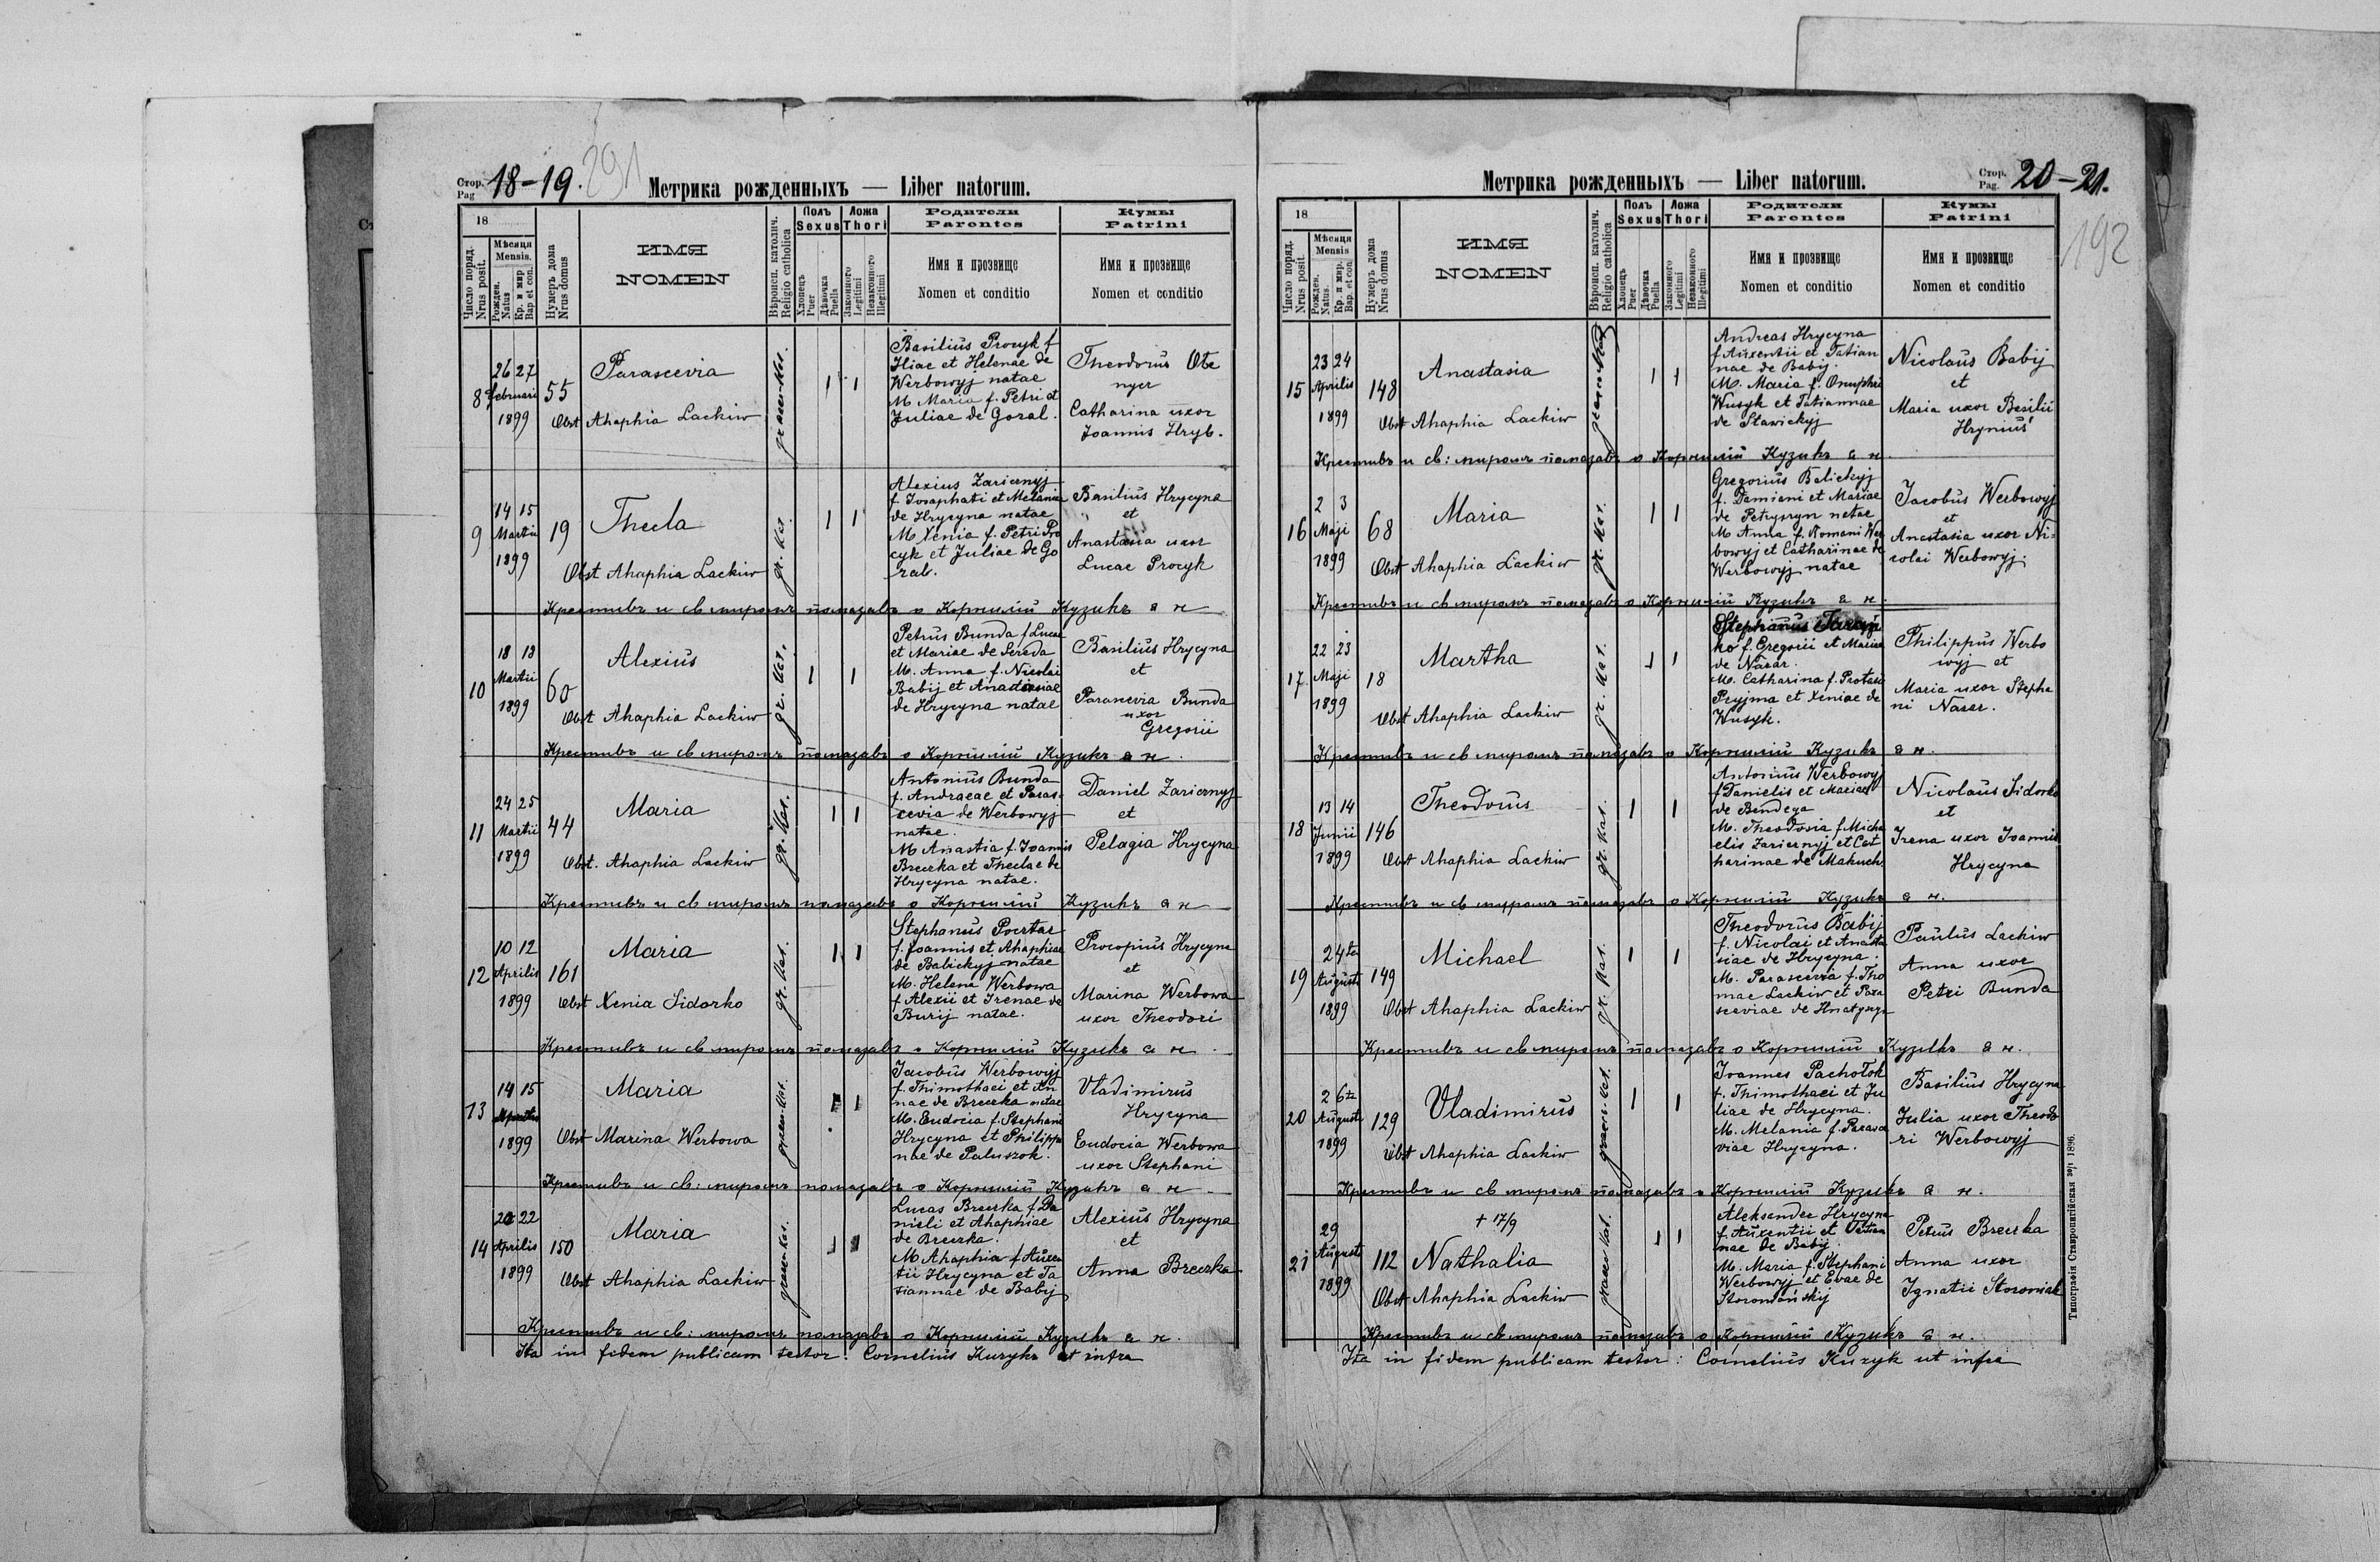 Стор. Pag 18-19. 291
Метрика рожденныхъ — Liber natorum.
18
Число поряд. Nrus posit.
Мѣсяця Mensis.
Рожден. Natus
Кр. и мѵр. Bap. et con.
Нумеръ дома Nrus domus
ИМЯ
NOMEN
Вѣроисп. католич. Religio catholica
Полъ Sexus
Хлопецъ Puer
Дѣвочка Puella
Ложа Thori
Законного Legitimi
Незаконного Illegitimi
Родители
Parentes
Имя и прозвище
Nomen et conditio
Кумы
Patrini
Имя и прозвище
Nomen et conditio
8 26 27 februari 1899
55
Parascevia
Obst Ahaphia Lackiw
1 1
Basilius Procyk f
Iliae et Helenae de
Werbowyj natae
M Maria f. Petri et
Juliae de Goral.
Theodorus Obe
nyer
Catharina uxor
Joannis Hryb.
9 14 15 Martii 1899
19
Thecla
Obst Ahaphia Lackiw
gr. kat.
1 1
Alexius Zariernyj
f. Josaphati et Melaniae
de Hrycyna natae
M Xenia f. Petri Pro
cyk et Juliae de Go
ral.
Basilius Hrycyna
et
Anastasia uxor
Lucae Procyk
Крестивъ и св мѵромъ помазавъ о Корнилій Кузикъ в н
10 18 19 Martii 1899
60
Alexius
Obst Ahaphia Lackiw
gr. kat.
1 1
Petrus Bunda f Lucae
et Mariae de Sereda
M. Anna f. Nicolai
Babij et Anastasiae
de Hrycyna natae
Basilius Hrycyna
et
Parascevia Bunda
uxor
Gregorii
Крестивъ и св мѵромъ помазавъ о Корнилій Кузикъ в н.
11 24 25 Martii 1899
44
Maria
Obst. Ahaphia Lackiw
gr. kat.
1 1
Antonius Bunda
f. Andraeae et Paras-
cevia de Werbowyj
natae.
M Anastia f. Joannis
Breczka et Theclae de
Hrycyna natae.
Daniel Zariernyj
et
Pelagia Hrycyna
Крестивъ и св мѵромъ помазавъ о Корнилій Кузикъ в н
12 10 12 Aprilis 1899
161
Maria
Obst Xenia Sidorko
gr. kat.
1 1
Stephanus Pocztar
f. Joannis et Ahaphiae
de Babickyj natae
M. Helena Werbowa
f. Alexii et Irenae de
Burij natae.
Procopius Hrycyna
et
Marina Werbowa
uxor Theodori
Крестивъ и св мѵромъ помазавъ о Корнилій Кузикъ в н.
13 14 15 1899
Maria
Obst Marina Werbowa
1 1
Jacobus Werbowyj
f. Thimothaei et An
nae de Breczka natae
M. Eudocia f. Stephani
Hrycyna et Philippi
nae de Paluszok.
Vladimirus
Hrycyna
Eudocia Werbowa
uxor Stephani
Крестивъ и св: мѵромъ помазавъ о Корнилій Кузикъ в н.
14 22 Aprilis 1899
150
Maria
Obst Ahaphia Lackiw
1 1
Lucas Breczka f Da
nieli et Ahaphiae
de Breczka.
M Ahaphia f Auxen
tii Hrycyna et Ta
tiannae de Babij
Alexius Hrycyna
et
Anna Breczka
Крестивъ и св: мѵромъ помазавъ о Корнилій Кузикъ в н.
Ita in fidem publicam testor: Cornelius Kuzyk ut infra
Метрика рожденныхъ — Liber natorum.
Стор. Pag. 20-21.
192
18
Число поряд. Nrus posit.
Мѣсяця Mensis
Рожден. Natus.
Кр. и мѵр. Bap. et con.
Нумеръ дома Nrus domus
ИМЯ
NOMEN
Вѣроисп. католич. Religio catholica
Полъ Sexus
Хлопецъ Puer
Дѣвочка Puella
Ложа Thori
Законного Legitimi
Незаконного Illegitimi
Родители
Parentes
Имя и прозвище
Nomen et conditio
Кумы
Patrini
Имя и прозвище
Nomen et conditio
15 23 24 Aprilis 1899
148
Anastasia
Obst Ahaphia Lackiw
1 1
Andreas Hrycyna
f Auxentii et Tatian
nae de Babij.
M. Maria f. Onuphri
Wusyk et Tatiannae
de Stawickyj
Nicolaus Babij
et
Maria uxor Basilii
Hrynius
Крестивъ и св: мѵромъ помазавъ о Корнилій Кузикъ в н.
16 2 3 Maji 1899
68
Maria
Obst Ahaphia Lackiw
gr. kat.
1 1
Gregorius Balickyj
f. Damiani et Mariae
de Petryszyn natae
M Anna f. Romani Wer
bowyj et Catharinae de
Werbowyj natae
Jacobus Werbowyj
et
Anastasia uxor Ni-
colai Werbowyj.
Крестивъ и св мѵромъ помазавъ о Корнилій Кузикъ в н.
17. 22 23 Maji 1899
18
Martha
Obst Ahaphia Lackiw
gr. kat.
1 1
Stephanus
ko f. Gregorii et Mariae
de Nazar.
M. Catharina f. Protasii
Pryjma et Xeniae de
Wusyk.
Philippus Werbo
wyj et
Maria uxor Stepha
ni Nazar.
Крестивъ и св мѵромъ помазавъ о Корнилій Кузикъ в н.
18 13 14 Junii 1899
146
Theodorus
Obst Ahaphia Lackiw
gr. kat.
1 1
Antonius Werbowyj
f Danielis et Mariae
de Bendyga
M. Theodosia f. Micha
elis Zariernyj et Cat
harinae de Makuch.
Nicolaus Sidorko
et
Irena uxor Joannis
Hrycyna
Крестивъ и св мѵромъ помазавъ о Корнилій Кузикъ в н.
19 24 Augusti 1899
149
Michael
Obst Ahaphia Lackiw
gr. kat.
1 1
Theodorus Babij
f. Nicolai et Anasta
siae de Hrycyna.
M. Parascevia f. Tho
mae Lackiw et Para
sceviae de
Paulus Lackiw
Anna uxor
Petri Bunda
Крестивъ и св мѵромъ помазавъ о Корнилій Кузикъ в н.
20 26 Augusti 1899
129
Vladimirus
Obst Ahaphia Lackiw
1 1
Joannes Pachołok
f. Thimothaei et Ju
liae de Hrycyna.
M. Melania f. Parasce
viae Hrycyna.
Basilius Hrycyna
Julia uxor Theodo
ri Werbowyj
Крестивъ и св мѵромъ помазавъ о Корнилій Кузикъ в н.
21 29 Augusti 1899
112
+ 17/9
Nathalia
Obst Ahaphia Lackiw
1 1
Aleksander Hrycyna
f. Auxentii et Tatian
nae de Babij.
M. Maria f. Stephani
Werbowyj et Evae de
Petrus Breczka
Anna uxor
Ignatii Storoniak
Крестивъ и св мѵромъ помазавъ о Корнилій Кузикъ в н.
Ita in fidem publicam testor: Cornelius Kuzyk ut infra
Типографія Ставропигійская зор 1896.